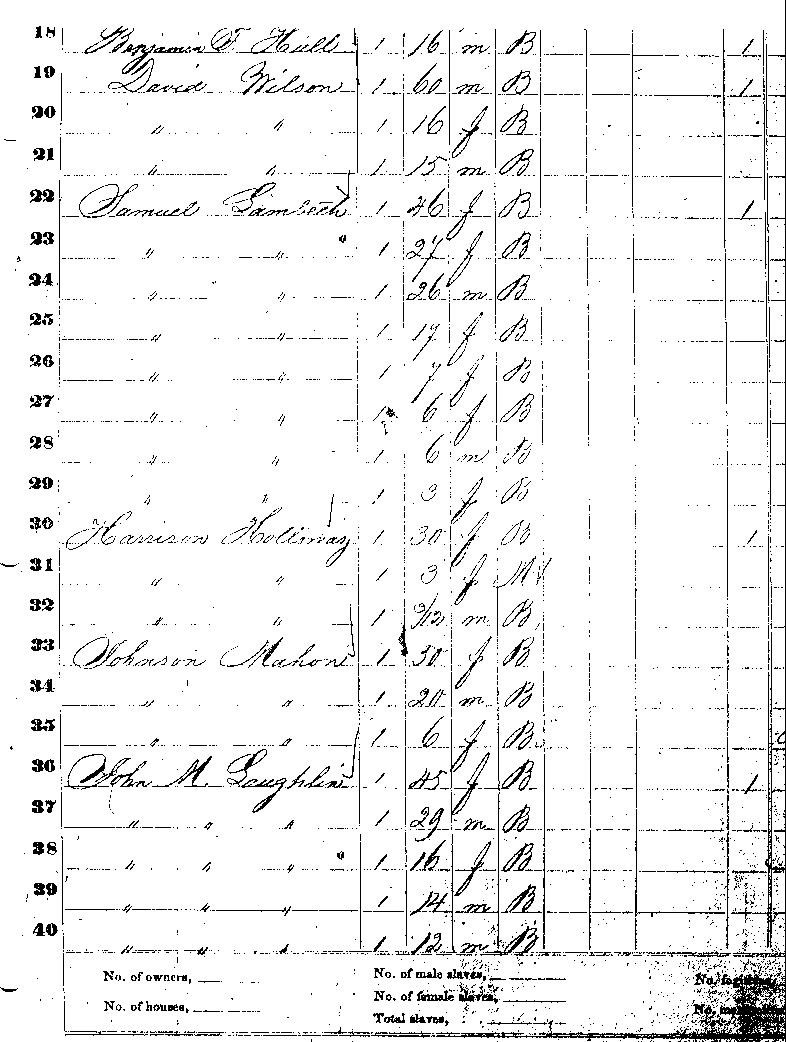 18 Benjamin F Hull 1 16 m B 1
19 David Wilson 1 60 m B 1
20 " " 1 16 f B
21 " " 1 15 m B
22 Samuel 1 46 f B 1
23 " " 1 27 f B
24 " " 1 26 m B
25 " " 1 17 f B
26 " " 1 7 f B
27 " " 1 6 f B
28 " " 1 6 m B
29 " " 1 3 f B
30 Harrison Holliway 1 30 f B 1
31 " " 1 3 f M
32 " " 1 m B
33 Johnson Mahon 1 30 f B
34 " " 1 20 m B
35 " " 1 6 f B
36 John M. Laughlin 1 45 f B 1
37 " " " 1 29 m B
38 " " " 1 16 f B
39 " " " 1 14 m B
40 " " " 1 12 m B
No. of owners, No. of male slaves,
No. of houses, No. of female slaves,
Total slaves,